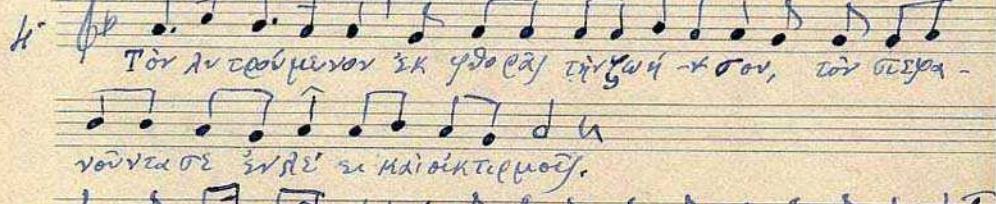 Τὸν λυτρούμενον ἐκ φθορᾶς τὴν ζωή -ν σου, τὸν στεφα-
νοῦντα σὲ ἐν ἐλέ ει καὶ οἰκτιρμοῖς.